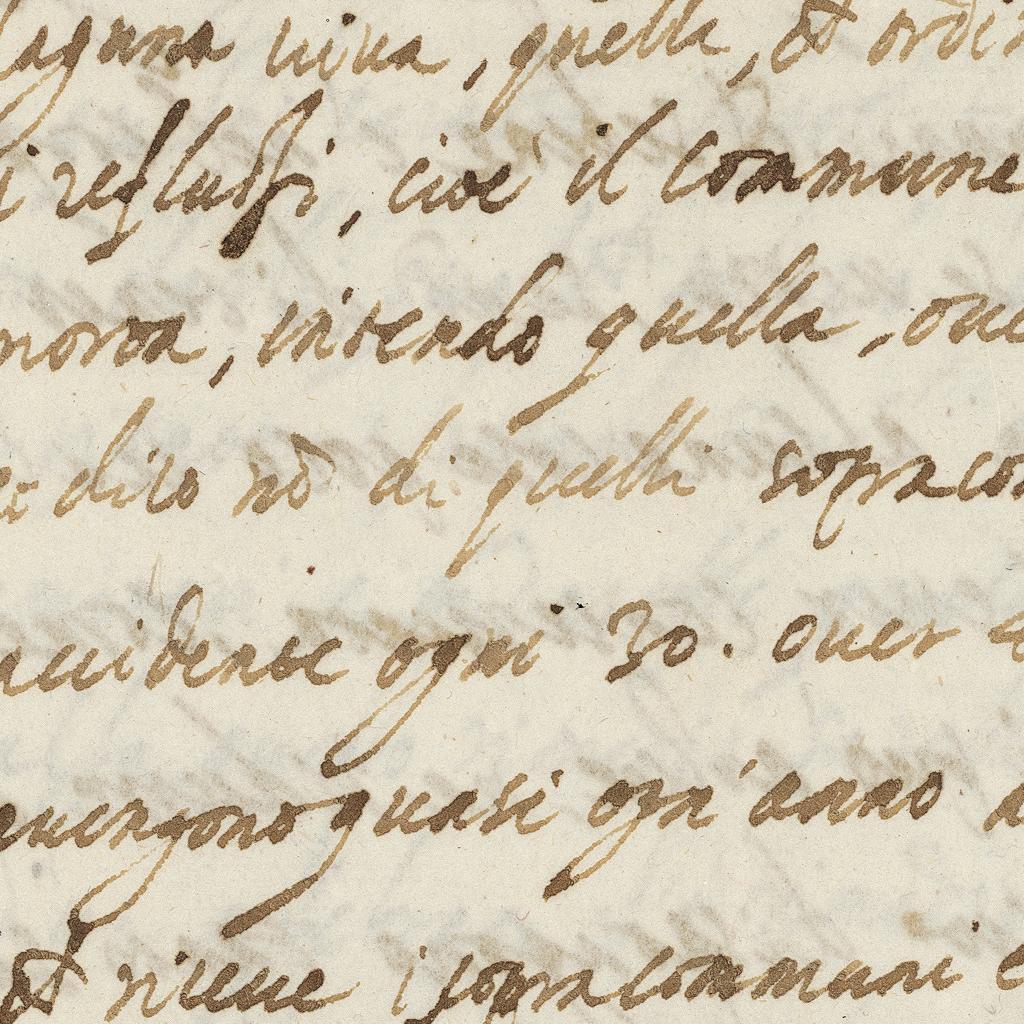 laguna viua, quella, et ordi
i reflussi, cioè il commune
morta, intendo quella, oue
dico nō di quelli sopraco
accidente ogni 30. ouer
auengono quasi ogn' anno
et viene i sopracommuni